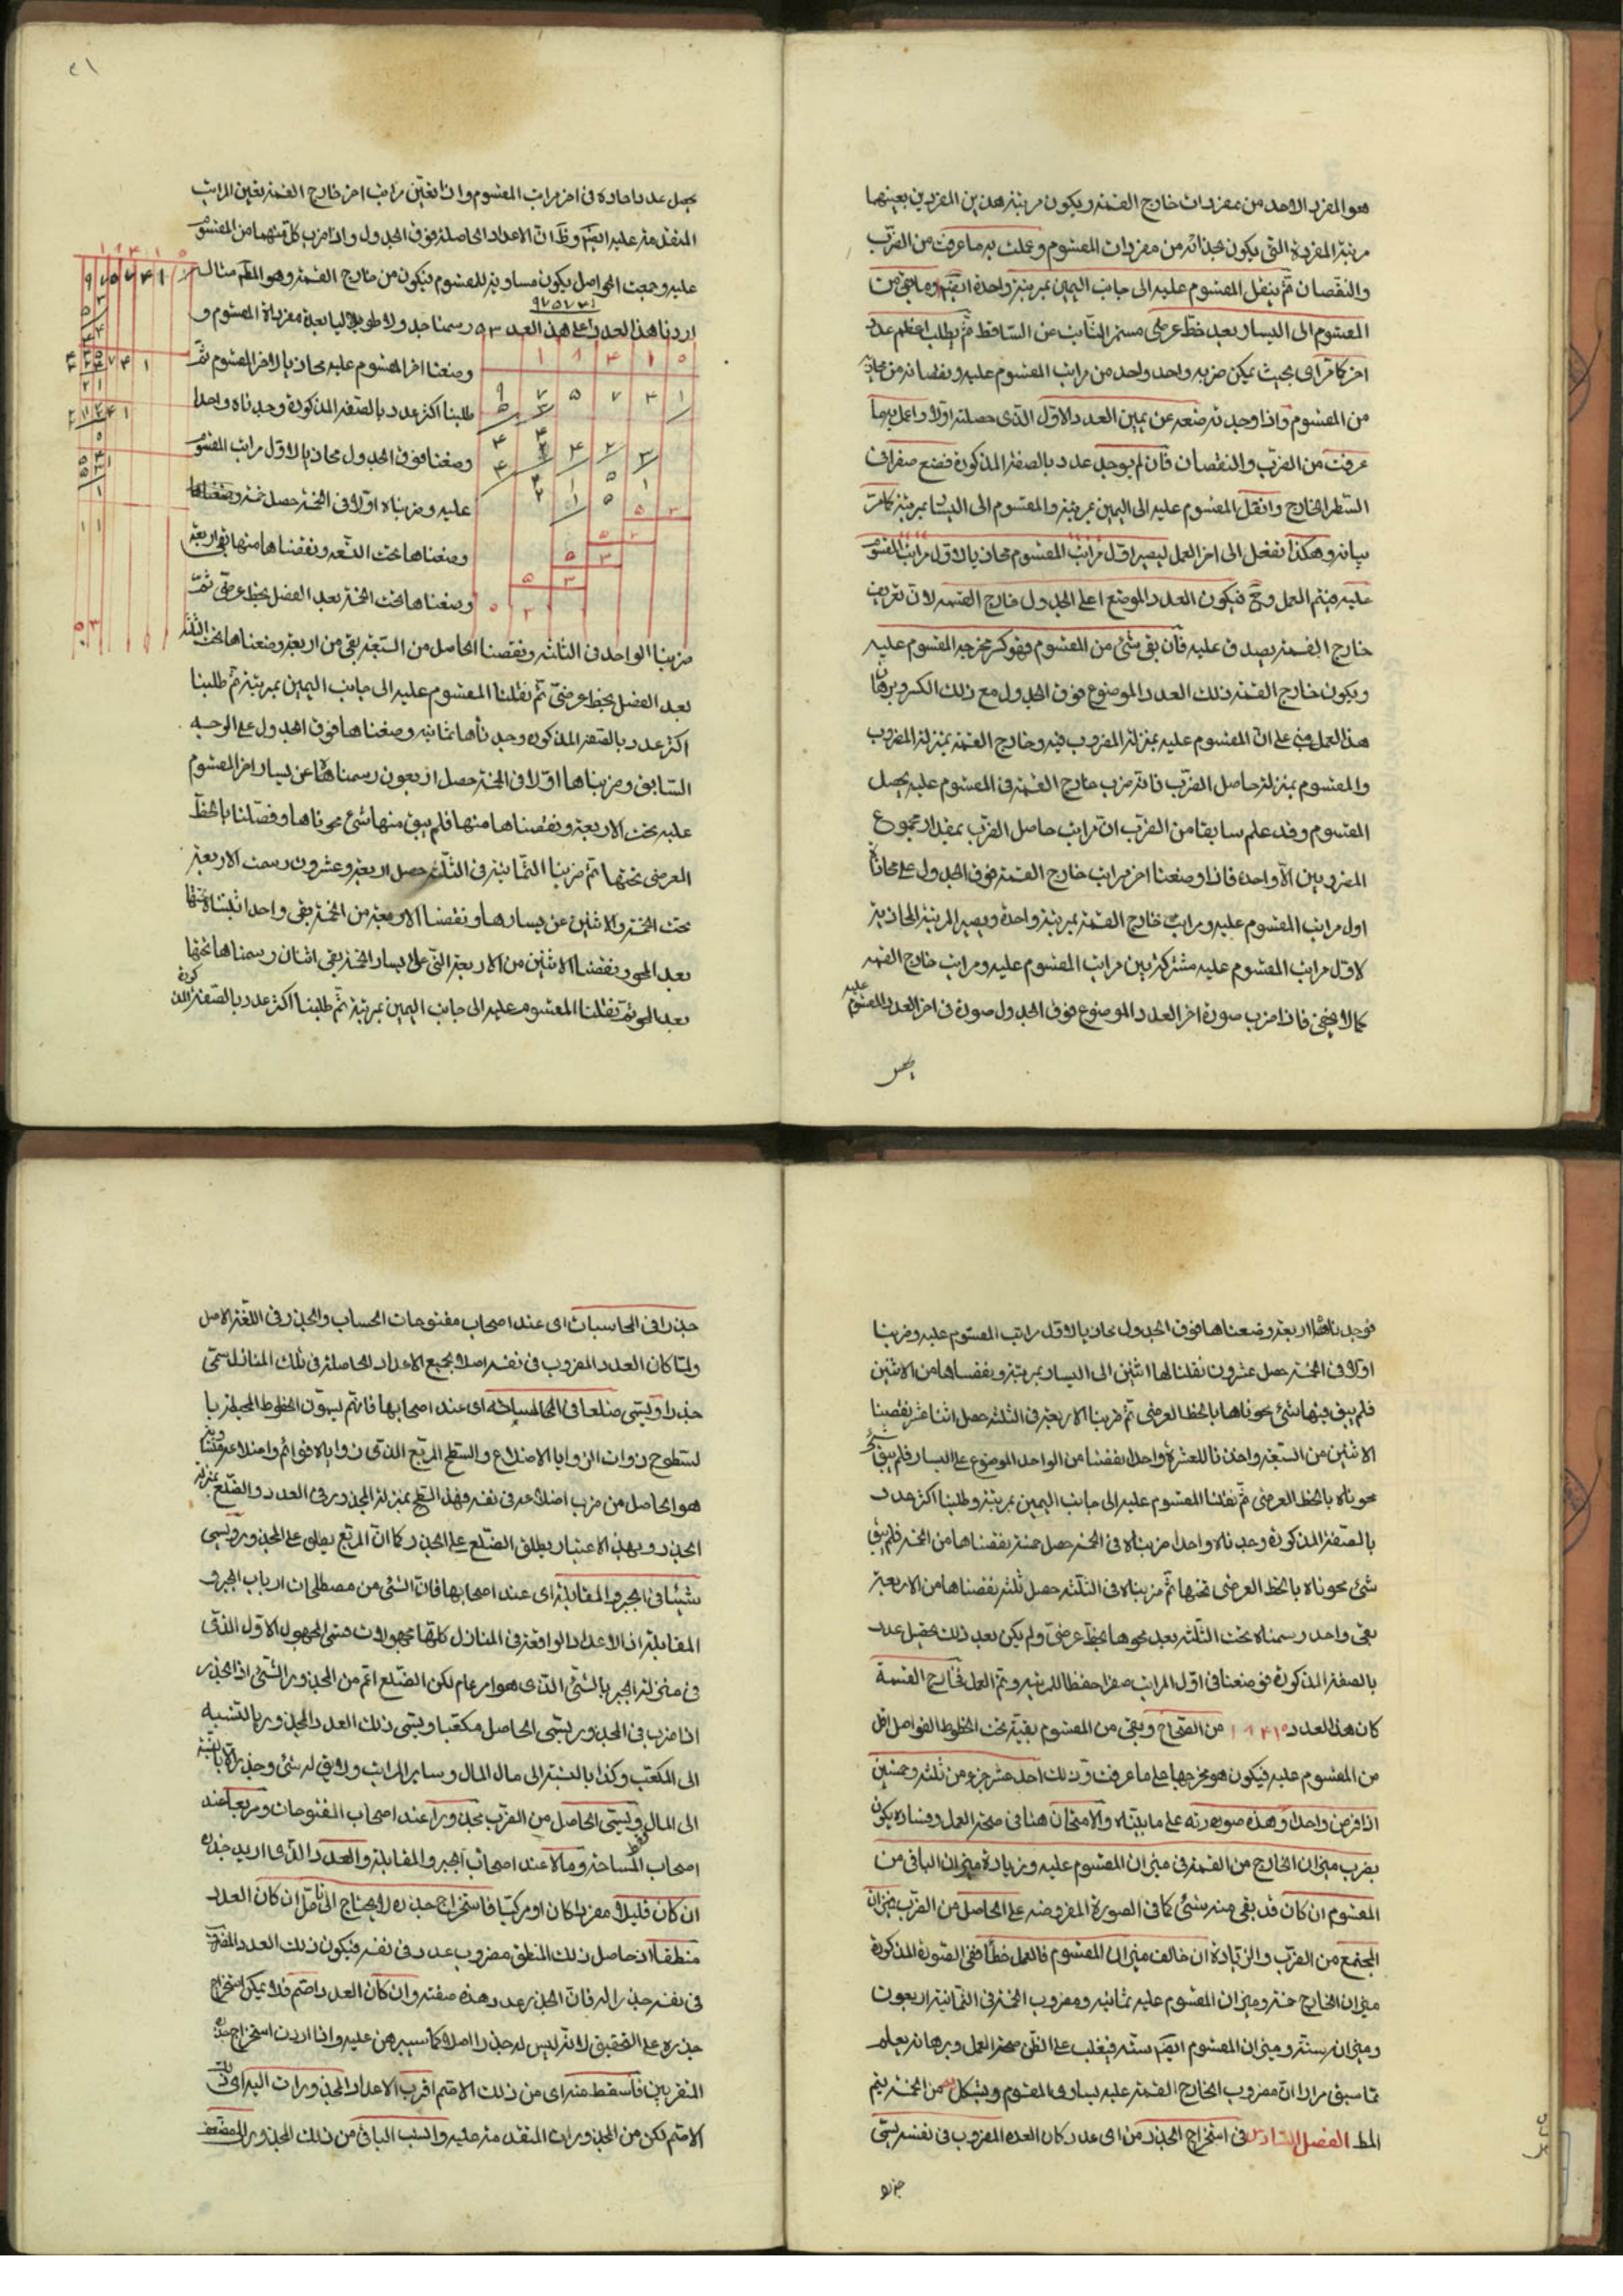 هو المفرد الاحد من مفردات خارج القسمة ويكون مرتبة هذين المفردين بعينهما
مرتبة المفردة التى يكون بحذائه من مفردات المقسوم وعملت به ما عرفت من الضرب
والنقصان ثم ينقل المقسوم عليه الى جانب اليمين بمرتبة واحدة او ما بقى من
المقسوم الى اليسار بعد خط عرضى ثم يطلب اعظم عدد
اخر كما مر اى بحيث يمكن ضربه واحد واحد من مراتب المقسوم عليه ونقصانه من
من المقسوم واذا وجدته نضعه عن يمين العدد الاول الذى حصلته اولا واعمل به ما
عرفت من الضرب والنقصان فان لم يوجد عدد بالصفة المذكورة فضع صفرا فى
السطر الخارج وانقل المقسوم عليه الى اليمين بمرتبة والمقسوم الى اليسار بمرتبة كما مر
بيانه وهكذا تفعل الى اخر العمل ليصير اول مراتب المقسوم محاذيا لاول مراتب المقسوم
عليه فيتم العمل وح فيكون العدد الموضع اعلى الجدول خارج القسمة لان تعريف
خارج القسمة يصدق عليه فان بقى شئ من المقسوم فهو كسر مخرجه المقسوم عليه
ويكون خارج القسمة ذلك العدد الموضوع فوق الجدول مع ذلك الكسر وبرهان
هذا العمل مبنى على ان المقسوم عليه بمنزلة المضروب فيه وخارج القسمة بمنزلة المضروب
والمقسوم بمنزلة حاصل الضرب فانه ضرب خارج القسمة فى المقسوم عليه يحصل
المقسوم وقد علم سابقا من الضرب ان مراتب حاصل الضرب بمقدار مجموع
المضروبين الا واحدة فاذا وضعنا اخر مراتب خارج القسمة فوق الجدول على محاذاة
اول مراتب المقسوم عليه ومراتب خارج القسمة بمرتبة واحدة ويصير المرتبة المحاذية
لاول مراتب المقسوم عليه مشتركة بين مراتب المقسوم عليه ومراتب خارج القسمة
كما لا يخفى فاذا ضرب صورة اخر العدد الموضوع فوق الجدول صورة فى اخر العدد المقسوم عليه
يحصل
٢١
يحصل عدد احاده فى اخر مراتب المقسوم واذا تعين مراتب اخر خارج القسمة تعين المراتب
المتقدمة عليه ايضا وظ ان الاعداد الحاصلة فوق الجدول واذا ضرب كل منهما من المقسوم
عليه وجمعت الحواصل يكون مساوية للمقسوم فيكون من خارج القسمة وهو المط مثاله
اردنا هذا العدد ٩٧٥٧٤١ على هذا العدد ٥٣ رسمنا جدولا طوياليا بعدة مفردات المقسوم و
وضعنا اخر المقسوم عليه محاذيا لاخر المقسوم ثم
طلبنا اكثر عدد بالصفة المذكورة وجدناه واحدا
وضعنا فوق الجدول محاذيا لاول مراتب المقسوم
عليه وضربناه اولا فى الخمسة حصل خمسة وضعناها
وضعناها تحت التسعة ونقصناها منها بقى اربعة
وضعناها تحت الخمسة بعد الفصل بخط عرضى ثم
ضربنا الواحد فى الثلثة ونقصنا الحاصل من السبعة بقى من اربعة وضعناها تحت الثلثة
بعد الفصل بخط عرضى ثم نقلنا المقسوم عليه الى جانب اليمين بمرتبة ثم طلبنا
اكثر عدد بالصفة المذكورة وجدناها ثمانية وضعناها فوق الجدول على الوجه
السابق وضربناها اولا فى الخمسة حصل اربعون رسمناها عن يسار اخر المقسوم
عليه تحت الاربعة ونقصناها منها فلم يبق منها شئ محوناها وفصلنا بالخط
العرضى تحتها ثم ضربنا الثمانية فى الثلثة حصل اربعة وعشرون رسمت الاربعة
تحت الخمسة والاثنين عن يسارها ونقصنا الاربعة من الخمسة بقى واحد اثبتناه تحتها
بعد المحو ونقصنا الاثنين من الاربعة التى على يسار الخمسة بقى اثنان رسمناها تحتها
بعد المحو ثم نقلنا المقسوم عليه الى جانب اليمين بمرتبة ثم طلبنا اكثر عدد بالصفة المذكورة
فوجدناها اربعة وضعناها فوق الجدول محاذيا لاول مراتب المقسوم عليه وضربنا
اولا فى الخمسة حصل عشرون نقلنا لها اثنين الى اليسار بمرتبة ونقصناها من الاثنين
فلم يبق منها شئ محوناها بالخط العرضى ثم ضربنا الاربعة فى الثلثة حصل اثنا عشر نقصنا
الاثنين من السبعة واخذنا للعشرة واحدا نقصنا من الواحد الموضوع على اليسار فلم يبق شئ
محوناه بالخط العرضى ثم نقلنا المقسوم عليه الى جانب اليمين بمرتبة وطلبنا اكثر عدد
بالصفة المذكورة وجدناه واحدا ضربناه فى الخمسة حصل خمسة نقصناها من الخمسة فلم يبق
شئ محوناه بالخط العرضى تحتها ثم ضربناه فى الثلثة حصل ثلثة نقصناها من الاربعة
بقى واحد رسمناه تحت الثلثة بعد محوها بخط عرضى ولم يكن بعد ذلك تحصيل عدد
بالصفة المذكورة فوضعنا فى اول المراتب صفرا حفظا للمرتبة وتم العمل فخارج القسمة
كان هذا العدد ١٨٤١٠ من الصحاح وبقى من المقسوم بقية تحت الخطوط الفواصل اقل
من المقسوم عليه فيكون هو مخرجها على ما عرفت وذلك احد عشر جزء من ثلثة وخمسين
اذا فرض واحدا وهذه صورته على ما بيناه والامتحان هنا فى صحة العمل وفساده يكون
بضرب ميزان الخارج من القسمة فى ميزان المقسوم عليه وزيادة ميزان الباقى من
المقسوم ان كان قد بقى منه شئ كما فى الصورة المفروضة على الحاصل من الضرب فميزان
المجتمع من الضرب والزيادة ان خالف ميزان المقسوم فالعمل خطأ ففى الصورة المذكورة
ميزان الخارج خمسة وميزان المقسوم عليه ثمانية ومضروب الخمسة فى الثمانية اربعون
وميزان ستة وميزان المقسوم ايضا ستة فيغلب على الظن صحة العمل وبرهانه يعلم
مما سبق مرارا ان مضروب الخارج القسمة عليه يساوى المقسوم ويشكل من الخمسة يتم
المط الفصل السادس فى استخراج الجذر من اى عدد كان العدد المضروب فى نفسه يسمى
جذرا
جذرا فى المحاسبات اى عند اصحاب مفتوحات الحساب والجذر فى اللغة الاصل
ولما كان العدد المضروب فى نفسه اصلا لجميع الاعداد الحاصلة فى تلك المنازل سمى
جذرا ويسمى ضلعا فى المساحة اى عند اصحابها فانهم يسمون الخطوط المحيطة با
لسطوح ذوات الزوايا الاضلاع والسطح المربع الذى زواياه قوائم واضلاعه متساوية
هو الحاصل من ضرب اضلاعه فى نفسه فهذا السطح بمنزلة المجذور فى العدد والضلع بمنزلة
الجذر وبهذا الاعتبار يطلق الضلع على الجذر كما ان المربع يطلق على المجذور ويسمى
شيئا فى الجبر والمقابلة اى عند اصحابها فان الشئ من مصطلحات ارباب الجبر و
المقابلة اذ الاعداد الواقعة فى المنازل كلها مجهولات فسمى المجهول الاول الذى
فى منزلة الجبر بالشئ الذى هو امر عام لكن الضلع اعم من الجذور والشئ اذ الجذر
اذا ضرب فى المجذور يسمى الحاصل مكعبا ويسمى ذلك العدد المجذور بالنسبة
الى المكعب وكذا بالنسبة الى مال المال وسائر المراتب ولا يق له شئ وجذر الا بالنسبة
الى المال ويسمى الحاصل من الضرب مجذورا عند اصحاب المفتوحات ومربعا عند
اصحاب المساحة ومالا عند اصحاب الجبر والمقابلة والعدد الذى اريد جذره
ان كان قليلا مفردا كان او مركبا فاستخراج جذره لا يحتاج الى تامل ان كان العدد
منطقا اذ حاصل ذلك المنطق مضروب عدد فى نفسه فيكون ذلك العدد المضروب
فى نفسه جذرا له فان الجذر عدد هذه صفته وان كان العدد اصم فلا يمكن استخراج
جذره على التحقيق لانه ليس له جذر اصلا كما سيبرهن عليه واذا اردت استخراج جذره
التقريبى فاسقط منه اى من ذلك الاصم اقرب الاعداد المجذورات اليه اى ذلك
الاصم لكن من المجذورات المتقدمة عليه وانسب الباقى من ذلك المجذور المضعف